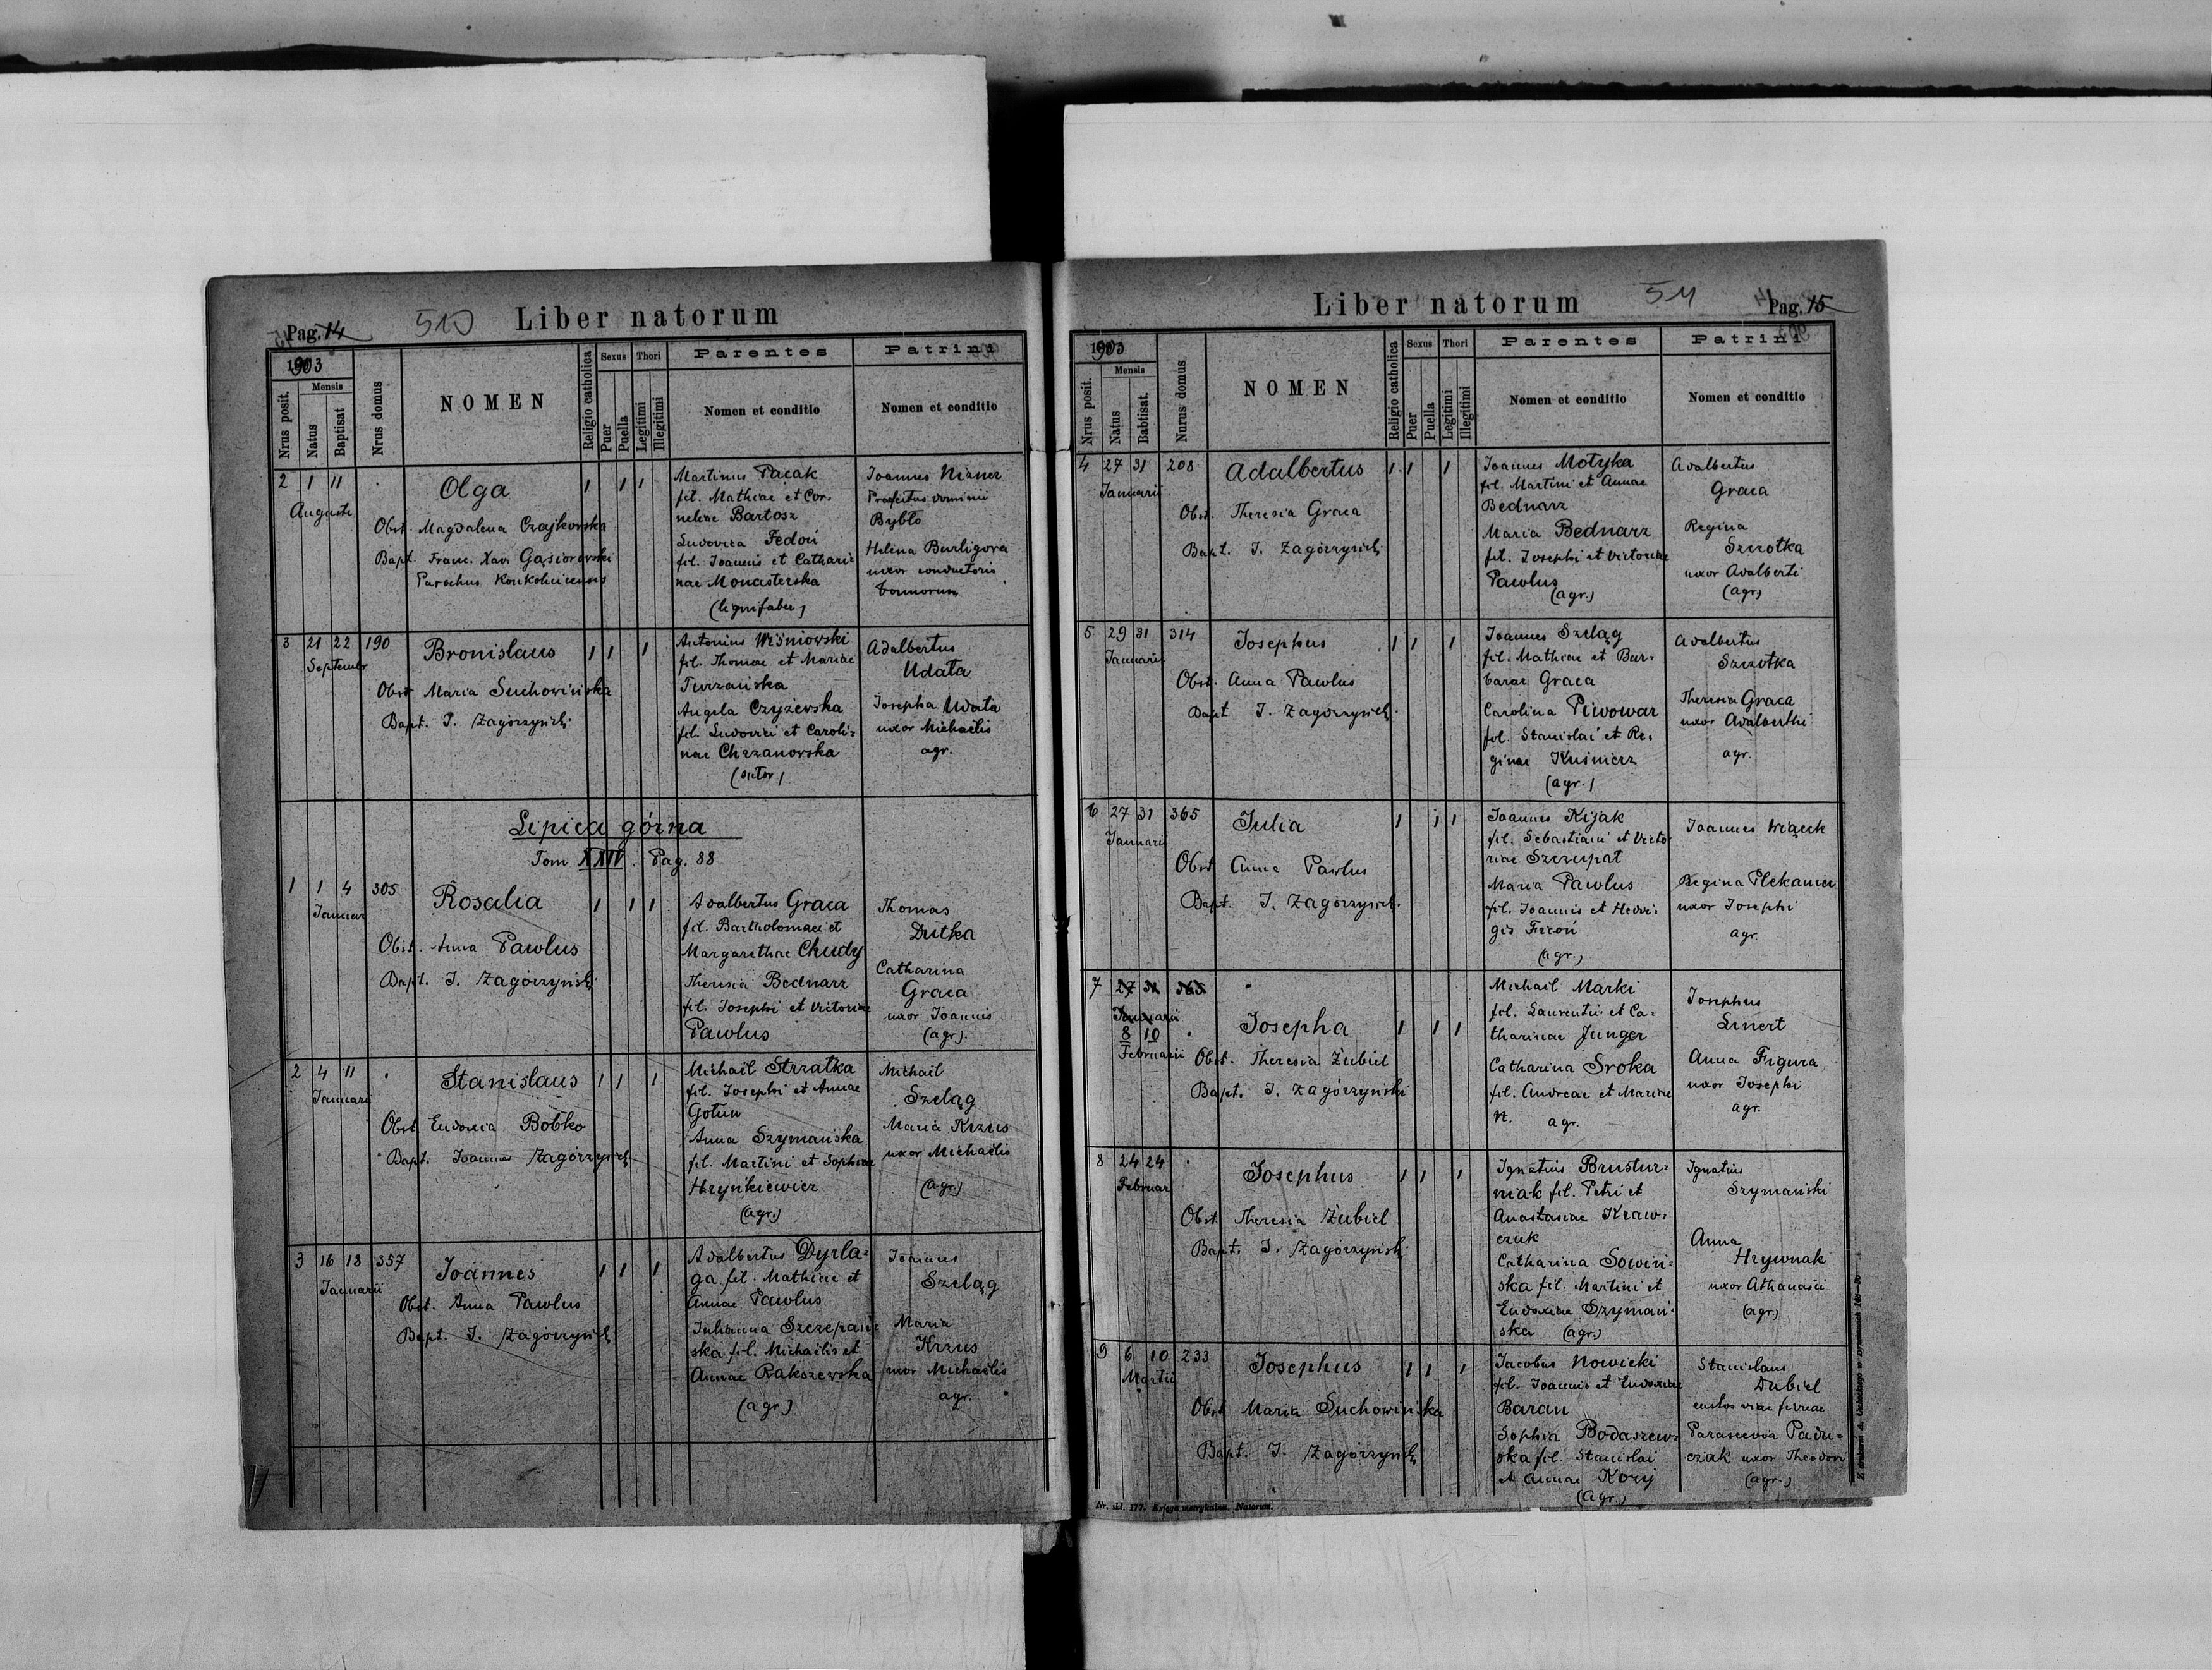 Pag. 14
510
Liber natorum
1903
Nrus posit.
Mensis
Natus
Baptisat
Nrus domus
NOMEN
Religio catholica
Sexus
Puer
Puella
Thori
Legitimi
Illegitimi
Parentes
Nomen et conditio
Patrini
Nomen et conditio
2 1 11
Augusti
Olga
1 1 1
Obst. Magdalena Czajkowska
Bapt. Franc. Xav. Gąsiorowski
Parochus
Martinus Pacak
fil. Mathiae et Cor-
neliae Bartosz
Ludovica Fedoń
fil. Joannis et Cathari-
nae Monasterska
(lignifaber)
Joannes Nizner
Praefectus dominii
Bybło
Helena Burligowa
uxor conductoris
bonorum
3 21 22 190
Septembr
Bronislaus
1 1 1
Obst. Maria Suchowińska
Bapt. J. Zagórzyński
Antonius Wiśniowski
fil. Thomae et Mariae
Turzańska
Angela Czyżewska
fil. Ludovici et Caroli-
nae Chrzanowska
(sutor)
Adalbertus
Udata
Josepha Udata
uxor Michaelis
agr.
Lipica górna
Tom XXIV. Pag. 88
1 1 4 305
Januar
Rosalia
1 1 1
Obst. Anna Pawlus
Bapt. J. Zagórzyński
Adalbertus Graca
fil. Bartholomaei et
Margarethae Chudy
Theresia Bednarz
fil. Josephi et Victoriae
Pawlus
Thomas
Dutka
Catharina
Graca
uxor Joannis
(agr).
2 4 11
Januarii
Stanislaus
1 1 1
Obst. Eudoxia Bobko
Bapt. Joannes Zagórzyński
Michael Strzałka
fil. Josephi et Annae
Anna Szymańska
fil. Martini et Sophiae
Hryńkiewicz
(agr.)
Michael
Szeląg
Maria Krzus
uxor Michaelis
(agr.)
3 16 18 357
Januarii
Joannes
1 1 1
Obst. Anna Pawlus
Bapt. J. Zagórzyński
Adalbertus Dyrla-
ga fil. Mathiae et
Annae Pawlus
Julianna Szczepań-
ska fil. Michaelis et
Annae Rakszewska
(agr.)
Joannes
Szeląg
Maria
Krzus
uxor Michaelis
agr.
Liber natorum
511
Pag. 15
1903
Nrus posit.
Mensis
Natus
Babtisat.
Nurus domus
NOMEN
Religio catholica
Sexus
Puer
Puella
Thori
Legitimi
Illegitimi
Parentes
Nomen et conditio
Patrini
Nomen et conditio
4 27 31 208
Januarii
Adalbertus
1 1 1
Obst. Theresia Graca
Bapt. J. Zagórzyński
Joannes Motyka
fil. Martini et Annae
Bednarz
Maria Bednarz
fil. Josephi et Victoriae
Pawlus
(agr.)
Adalbertus
Graca
Regina
Szczotka
uxor Adalberti
(agr)
5 29 31 314
Januarii
Josephus
1 1 1
Obst. Anna Pawlus
Bapt J. Zagórzyński
Joannes Szeląg
fil. Mathiae et Bar-
barae Graca
Carolina Piwowar
fil. Stanislai et Re-
ginae Kuśnierz
(agr.)
Adalbertus
Szczotka
Theresia Graca
uxor Adalberthi
agr.
6 27 31 365
Januarii
Julia
1 1 1
Obst Anna Pawlus
Bapt. J. Zagórzyński
Joannes Kijak
fil. Sebastiani et Victo-
riae Szczupat
Maria Pawlus
fil. Joannis et Hedvi-
gis Ficoń
(agr.)
Joannes Wiącek
Regina Plekaniec
uxor Josephi
agr.
7 27 31 365
Januarii
8 10
Februarii
Josepha
1 1 1
Obst. Theresia Zubiel
Bapt. J. Zagórzyński
Michael Marki
fil. Laurentii et Ca-
tharinae Junger
Catharina Sroka
fil. Andreae et Mariae
N. agr.
Josephus
Linert
Anna Figura
uxor Josephi
agr.
8 24 24
Februar
Josephus
1 1 1
Obst. Theresia Zubiel
Bapt. J. Zagórzyński
Ignatius Brustur-
niak fil. Petri et
Anastasiae Kraw-
czuk
Catharina Sowiń-
ska fil. Martini et
Eudoxiae Szymań-
ska (agr.)
Ignatius
Szymański
Anna
Hrywnak
uxor Athanasii
(agr.)
9 6 10 233
Martii
Josephus
1 1 1
Obst Maria Suchowińska
Bapt. J. Zagórzyński
Jacobus Nowicki
fil. Joannis et Eudoxiae
Baran
Sophia Bodaszew-
ska fil. Stanislai
et Annae Korij
(agr.)
Stanislaus
Dubiel
custos viae ferreae
Parascevia Padu-
czak uxor Theodori
(agr.)
Nr. skł. 177. Księga metrykalna. Natorum.